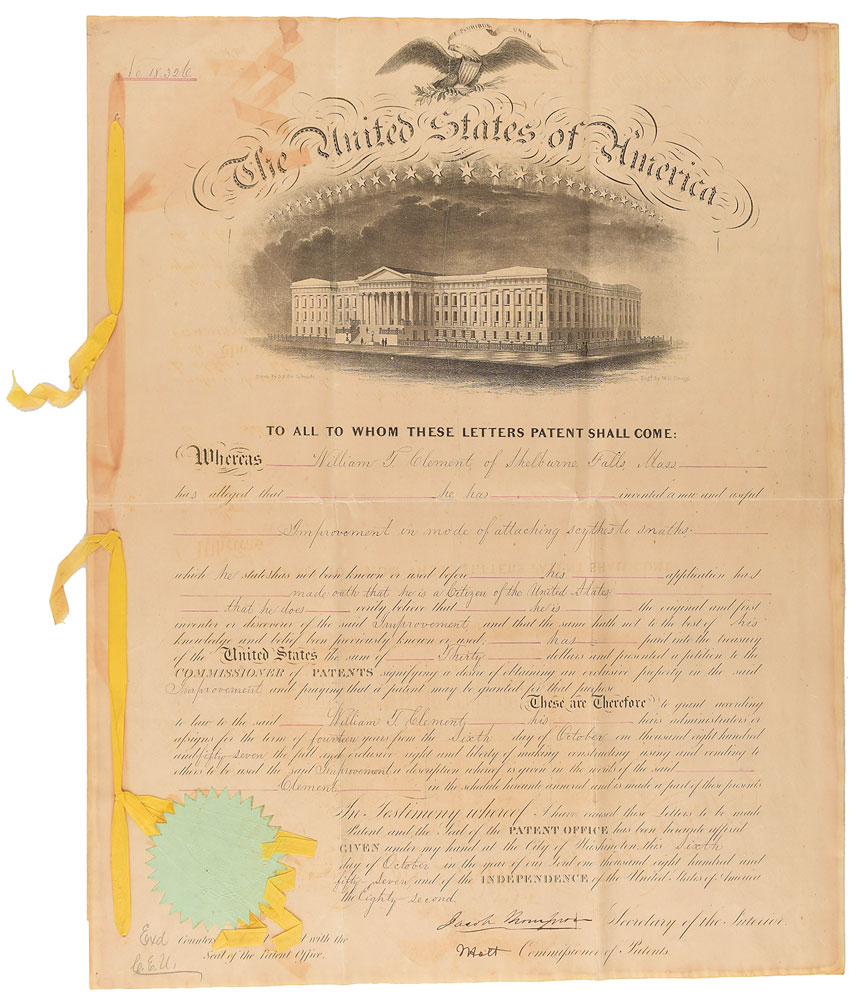 No 18.326
E PLURIBUS UNUM
The United States of America
TO ALL TO WHOM THESE LETTERS PATENT SHALL COME:
Whereas William T. Clement, of Shelburne Falls, Mass
has alleged that he has invented a new and useful
Improvement in mode of attaching scythes to snaths.
which he states has not been known or used before his application has
made oath that he is a Citizen of the United States
that he does verily believe that he is the original and first
inventor or discoverer of the said Improvement and that the same hath not to the best of his
knowledge and belief been previously known or used, has paid into the treasury
of the United States the sum of Thirty dollars and presented a petition to the
COMMISSIONER of PATENTS signifying a desire of obtaining an exclusive property in the said
Improvement and praying that a patent may be granted for that purpose
These are Therefore to grant according
to law to the said William T. Clement, his heirs administrators or
assigns for the term of fourteen years from the Sixth day of October one thousand eight hundred
and fifty seven the full and exclusive right and liberty of making constructing using and vending to
others to be used the said Improvement a description whereof is given in the words of the said
Clement in the schedule hereunto annexed and is made a part of these presents
In Testimony whereof I have caused these Letters to be made
Patent and the Seal of the PATENT OFFICE has been hereunto affixed
GIVEN under my hand at the City of Washington this Sixth
day of October in the year of our Lord one thousand eight hundred and
fifty seven and of the INDEPENDENCE of the United States of America
the Eighty second.
Jacob Thompson Secretary of the Interior.
Counters with the
Seal of the Patent Office.
Holt Commissioner of Patents.
Exd
C.E.U.